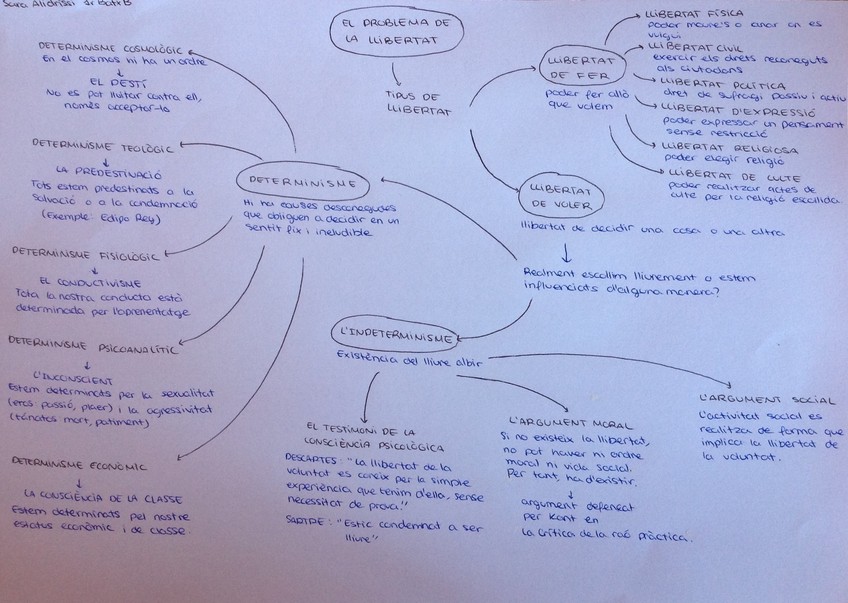 Sara Alidrissi 1r Batx B
EL PROBLEMA DE
LA LLIBERTAT
TIPUS DE
LLIBERTAT
LLIBERTAT
DE FER
poder fer allò
que volem
LLIBERTAT FÍSICA
poder moure's o anar on es
vulgui
LLIBERTAT CIVIL
exercir els drets reconeguts
als ciutadans
LLIBERTAT POLÍTICA
dret de sufragi passiu i actiu
LLIBERTAT D'EXPRESSIÓ
poder expressar un pensament
sense restricció
LLIBERTAT RELIGIOSA
poder elegir religió
LLIBERTAT DE CULTE
poder realitzar actes de
culte per la religió escollida
LLIBERTAT
DE VOLER
llibertat de decidir una cosa o una altra
Realment escollim lliurement o estem
influenciats d'alguna manera?
DETERMINISME
Hi ha causes desconegudes
que obliguen a decidir en un
sentit fix i ineludible
DETERMINISME COSMOLÒGIC
En el cosmos hi ha un ordre
EL DESTÍ
No es pot lluitar contra ell,
només acceptar-lo
DETERMINISME TEOLÒGIC
LA PREDESTINACIÓ
Tots estem predestinats a la
salvació o a la condemnació
(Exemple: Edipo Rey)
DETERMINISME FISIOLÒGIC
EL CONDUCTIVISME
Tota la nostra conducta està
determinada per l'aprenentatge
DETERMINISME PSICOANALÍTIC
L'INCONSCIENT
Estem determinats per la sexualitat
(eros: passió, plaer) i la agressivitat
(tánatos mort, patiment)
DETERMINISME ECONÒMIC
LA CONSCIÈNCIA DE LA CLASSE
Estem determinats pel nostre
estatus econòmic i de classe.
L'INDETERMINISME
Existència del lliure albir
EL TESTIMONI DE LA
CONSCIÈNCIA PSICOLÒGICA
DESCARTES: "La llibertat de la
voluntat es coneix per la simple
experiència que tenim d'ella, sense
necessitat de prova."
SARTRE: "Estic condemnat a ser
lliure"
L'ARGUMENT MORAL
Si no existeix la llibertat,
no pot haver ni ordre
moral ni vida social.
Per tant, ha d'existir.
argument defensat
per Kant en
La crítica de la raó pràctica.
L'ARGUMENT SOCIAL
L'activitat social es
realitza de forma que
implica la llibertat de
la voluntat.